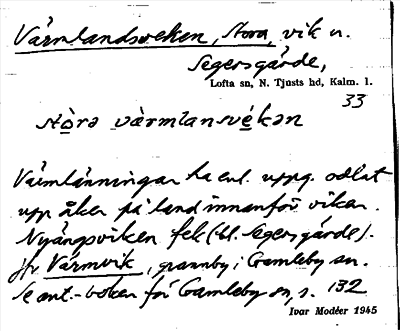 Värmlandsveken, Stora, vik n.
Segersgärde,
Lofta sn, N. Tjusts hd, Kalm. l.
33
stòra vàrmlansvékan
Värmlänningar ha enl. uppg. odlat
upp åker på land innanför viken.
Nyängsviken fek (bl. Segersgärde).
Jfr Värmvik, grannby i Gamleby sn.
Se ant.-boken för Gamleby sn, s. 132
Ivar Modéer 1945